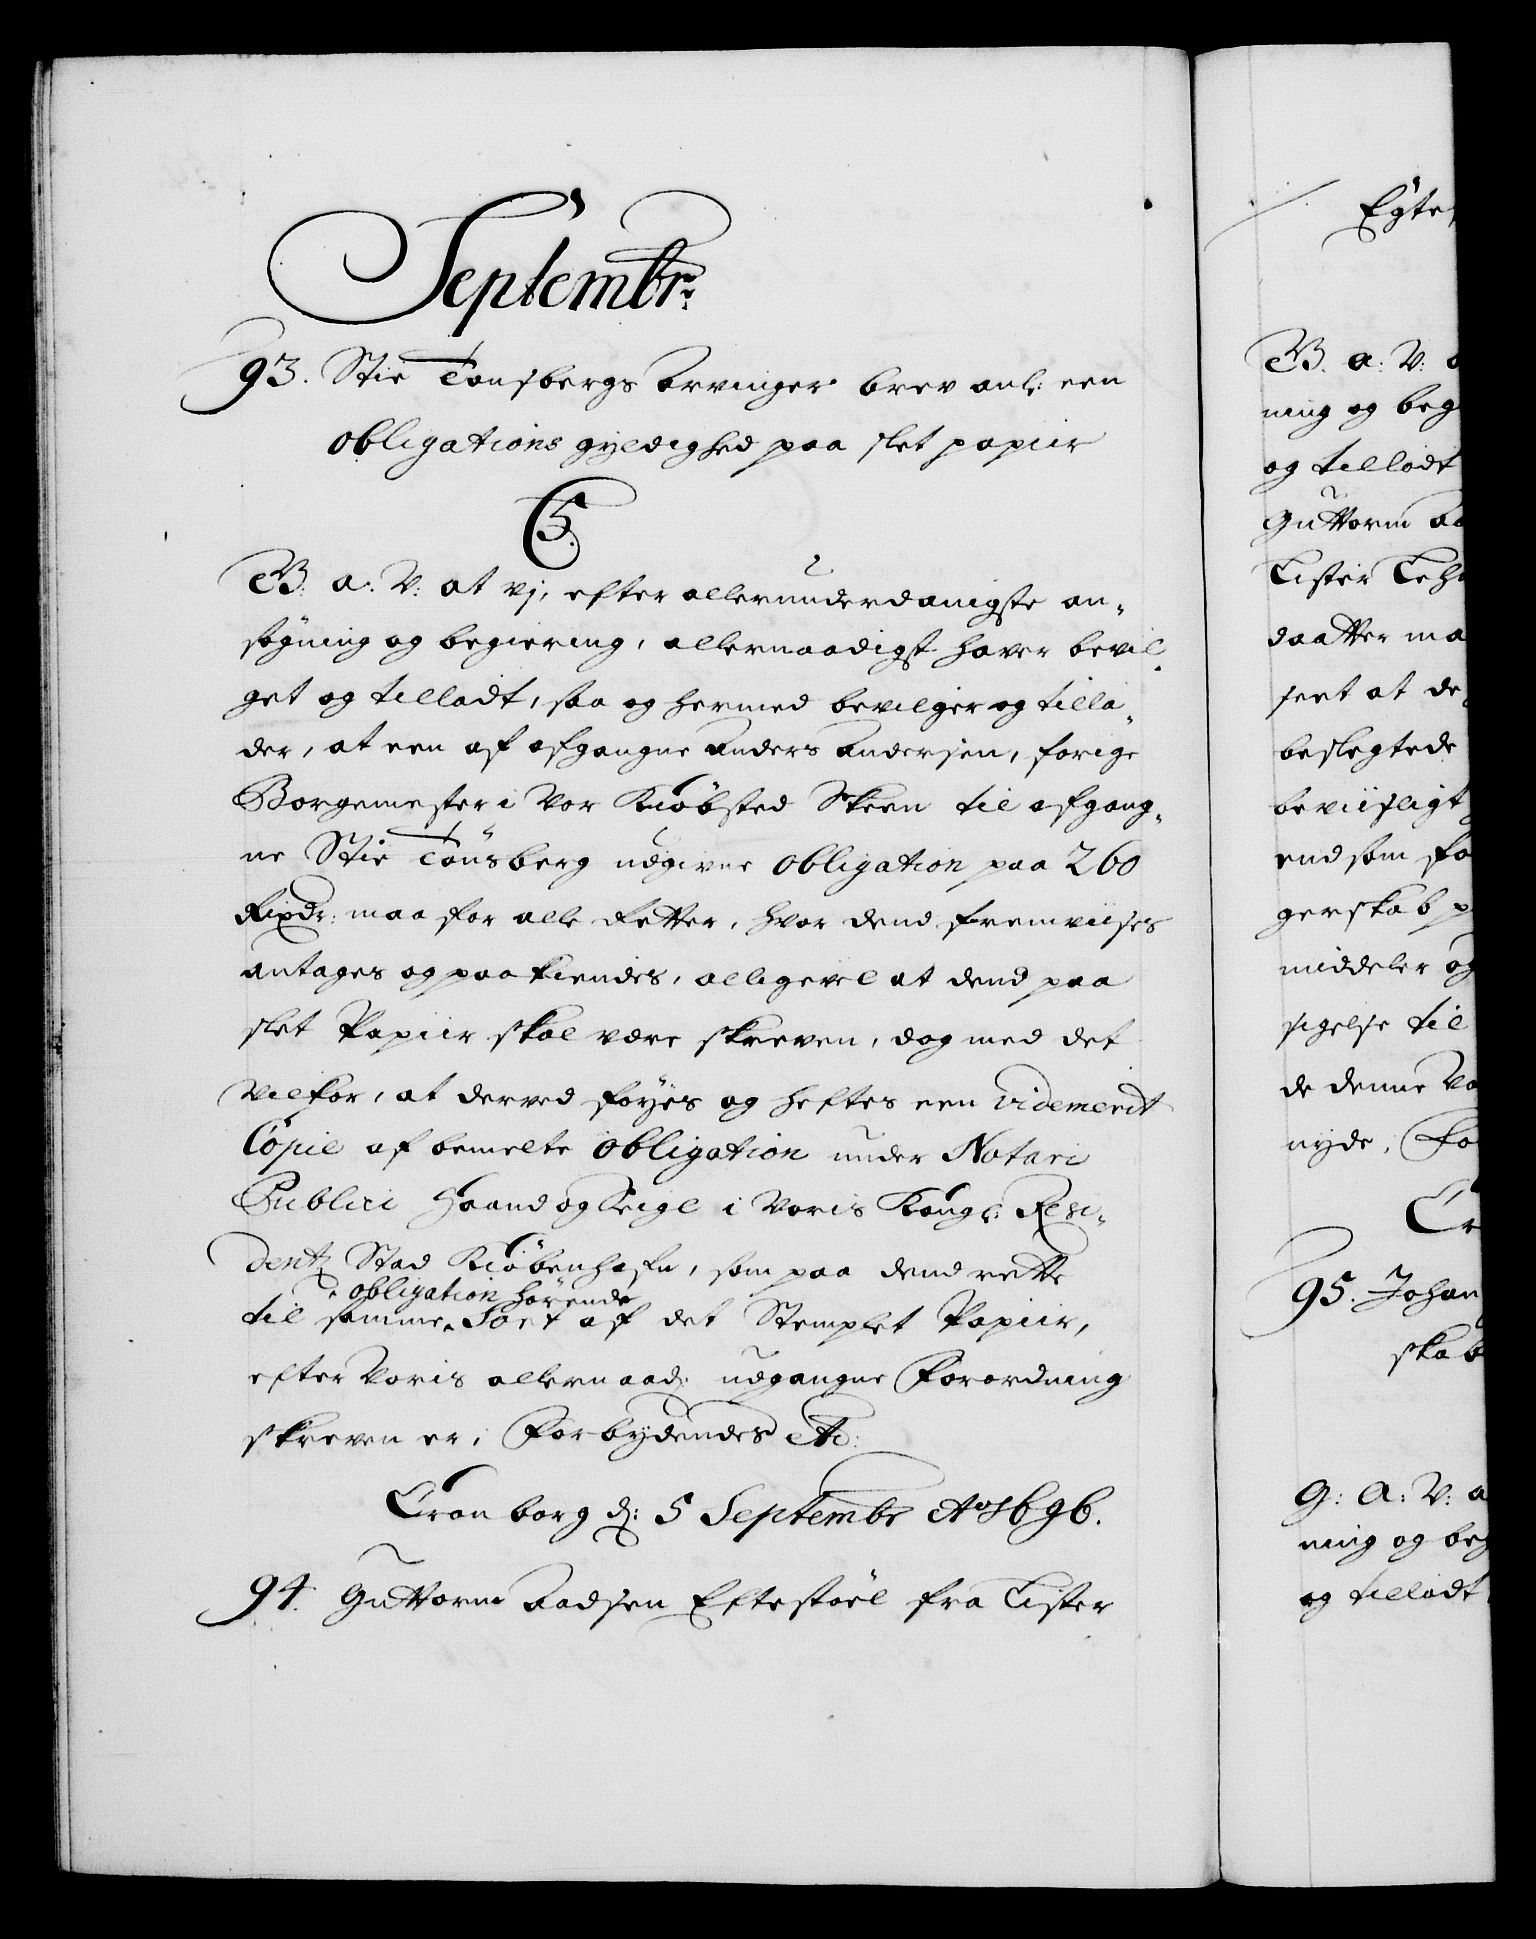 Septembr:
93. Stie Tonsbergs Arvinger brev anl: een
obligations gyldighed paa slet papiir
C5.
G. a: V: at vj, efter allerunderdanigste an„
søgning og begiering, allernaadigst hafver bevil„
get og tilladt, saa og hermed bevilger og tilla„
der, at een af afgangne Anders Andersen, forige
Borgemester i Vor Kiøbsted Skeen til afgang„
ne Stie Tønsberg udgivne obligation paa 260
Rixdr: maa for alle Retter, hvor dend fremviises
antages og paa kiendes, alligevel at dend paa
slet Papiir skal være skreven, dog med det
vilkor, at derved føyes og heftes een videmerit
Copie af bemelte obligation under Notari
Publici Haand og Seigl i Voris Kongl: Resi„
dentz Stad Kiøbenhafn, som paa dend rette
obligation hørende
til samme Sort af det Stemplet Papiir,
efter Voris allernaad: udgangne Forordning
skreven er, Forbydendes etc:
Cronborg d: 5 Septembr Ao 1696.
94. Guttorm Aadsen Eftestøel fra Lister
Egte
G. a: V: a
ning og beg
og tilladt
Guttorm Aa
Lister Lehn
daatter ma
seet at de
beslegtede
beviisligt
end som fo
gerskab p
middeler og
sigelse til
de denne Vo
nyde, Fo
Cr
95. Johan
skab
G: A: V: a
ning og beg
og tilladt